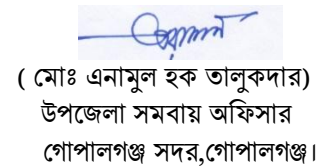 ( মোঃ এনামুল হক তালুকদার)
উপজেলা সমবায় অফিসার
গোপালগঞ্জ সদর,গোপালগঞ্জ।